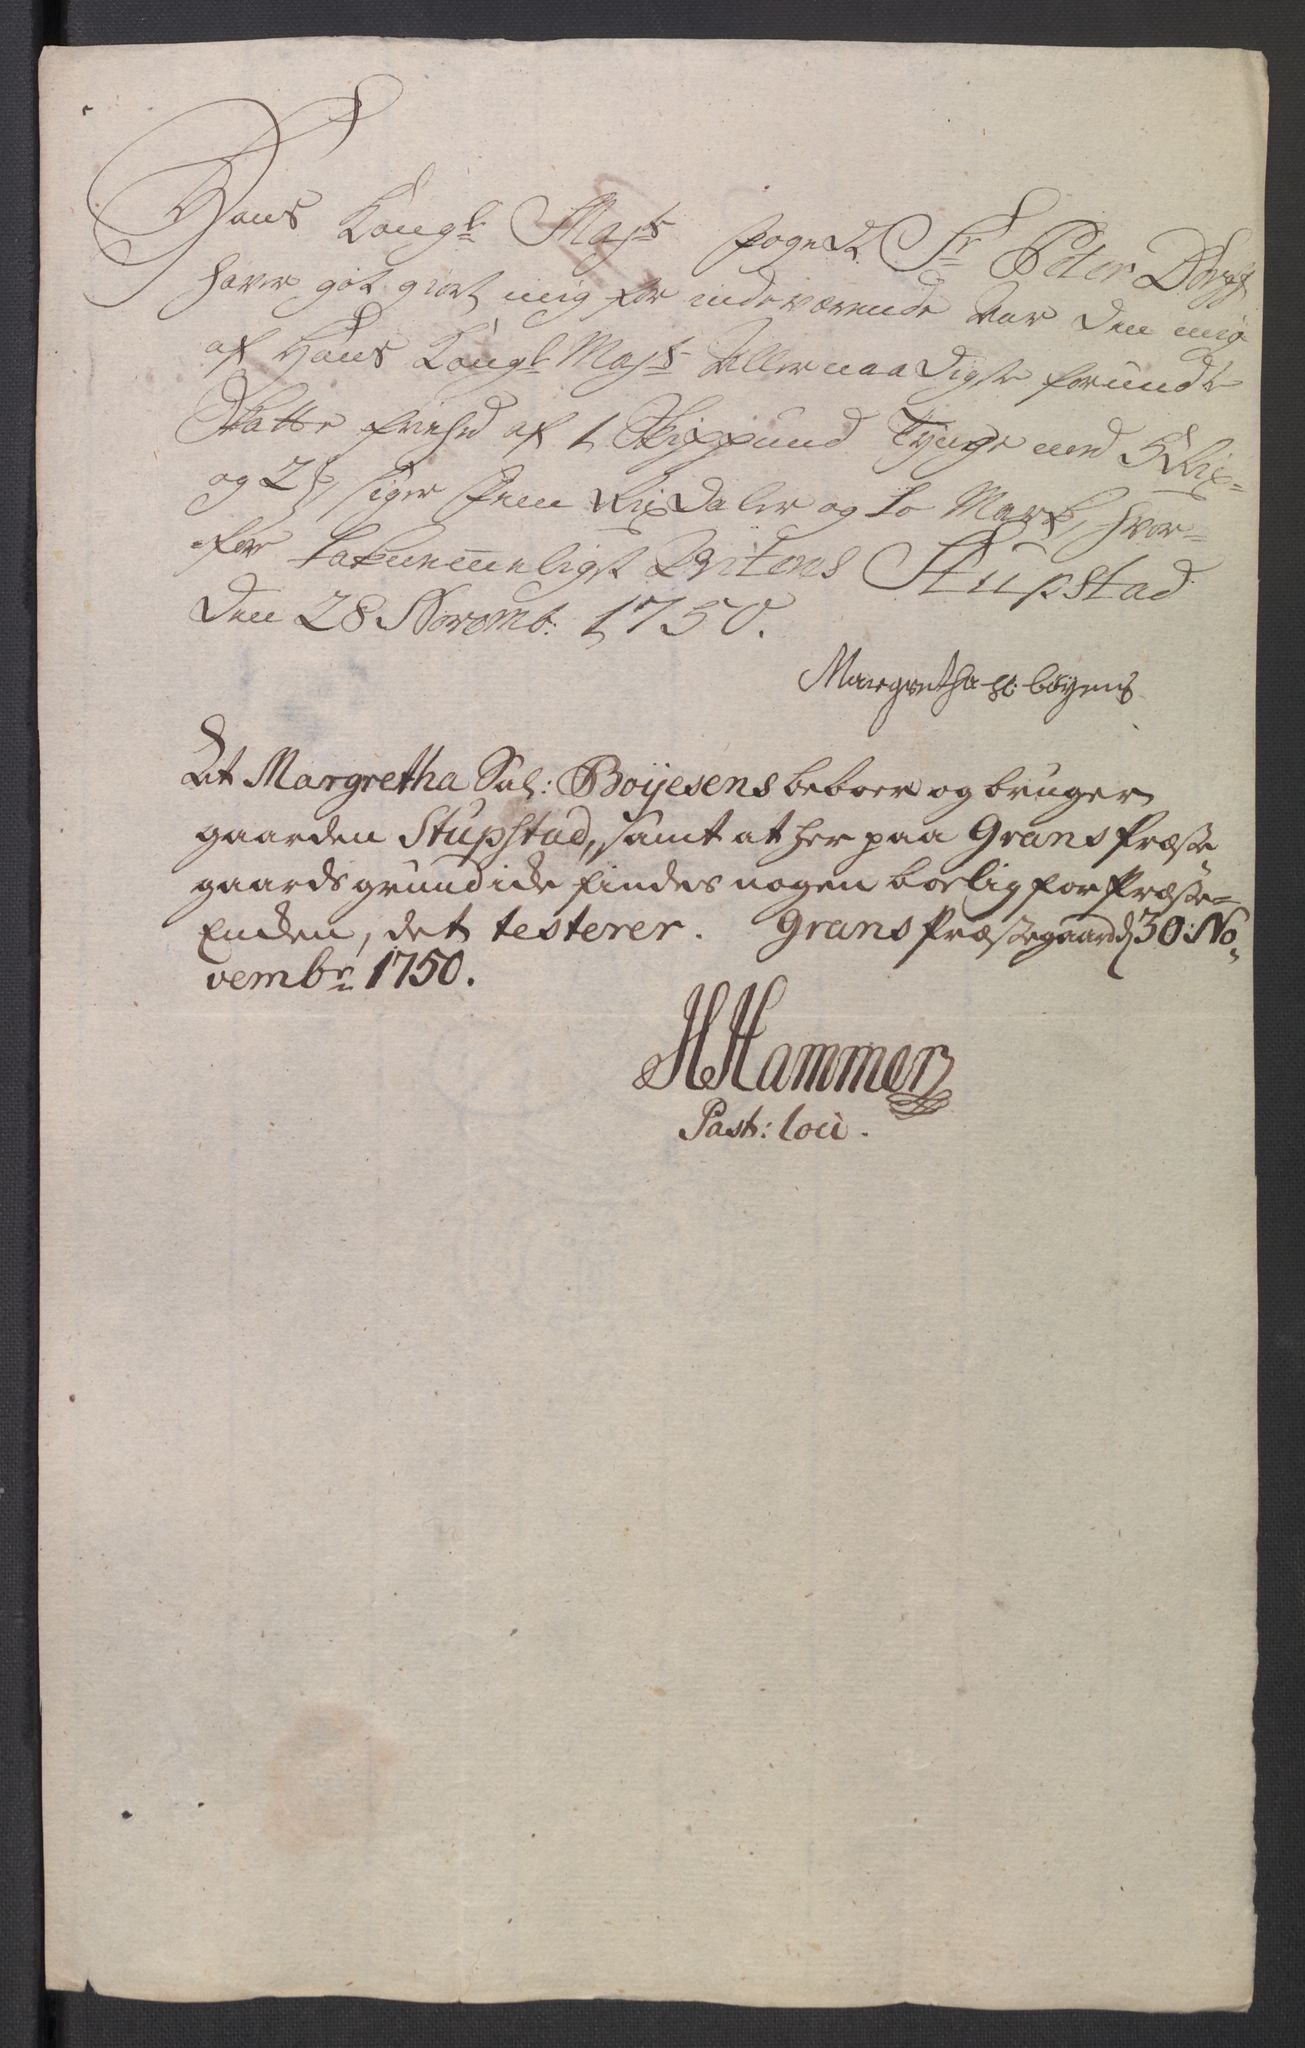 Hans Kongl Mayts foged Sr Peter Dorph
haver got giort mig for indeværende Aar den mig
af Hans Kongl Mayts Allernaadigste forundte
Skatte frihed af 1 Skippund Tynge med 5 Rix=
og 2 siger fem Rixdaler og to Mark, hvor=
for taknemmeligst Qviteres Stupstad
den 28 Novemb: 1750.
Margretha Sl: böyens
At Margretha Sal: Boÿesens beboer og bruger
gaarden Stupstad, samt at her paa Grans Præste
gaards grund icke findes nogen boelig for Præste=
Encken, det testerer. Grans Præstegaard d 30: No=
vembr 1750.
HHammer
Past: loci.